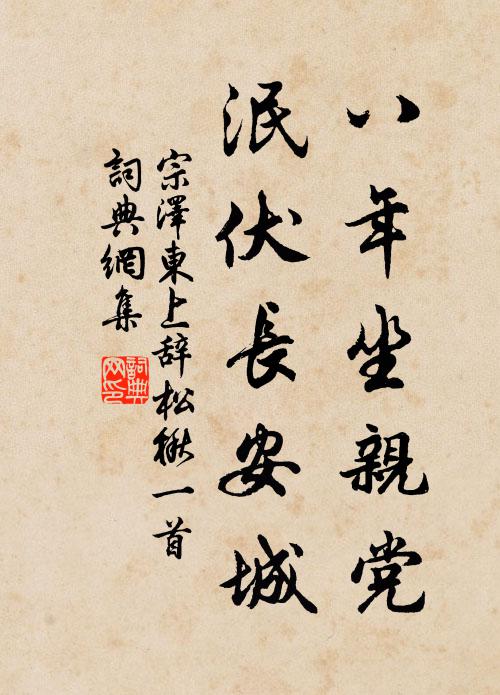 八年坐親党
泯伏長安城
宗澤東上辞松楸一首
詞典網集
詞典網印